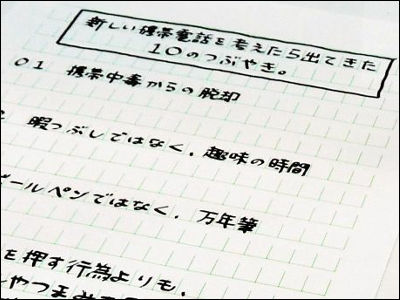 新しい携帯電話を考えたら出てきた
10のつぶやき。
01 携帯中毒からの脱却
暇つぶしではなく、趣味の時間
ボールペンではなく、万年筆
を押す行為よりも、